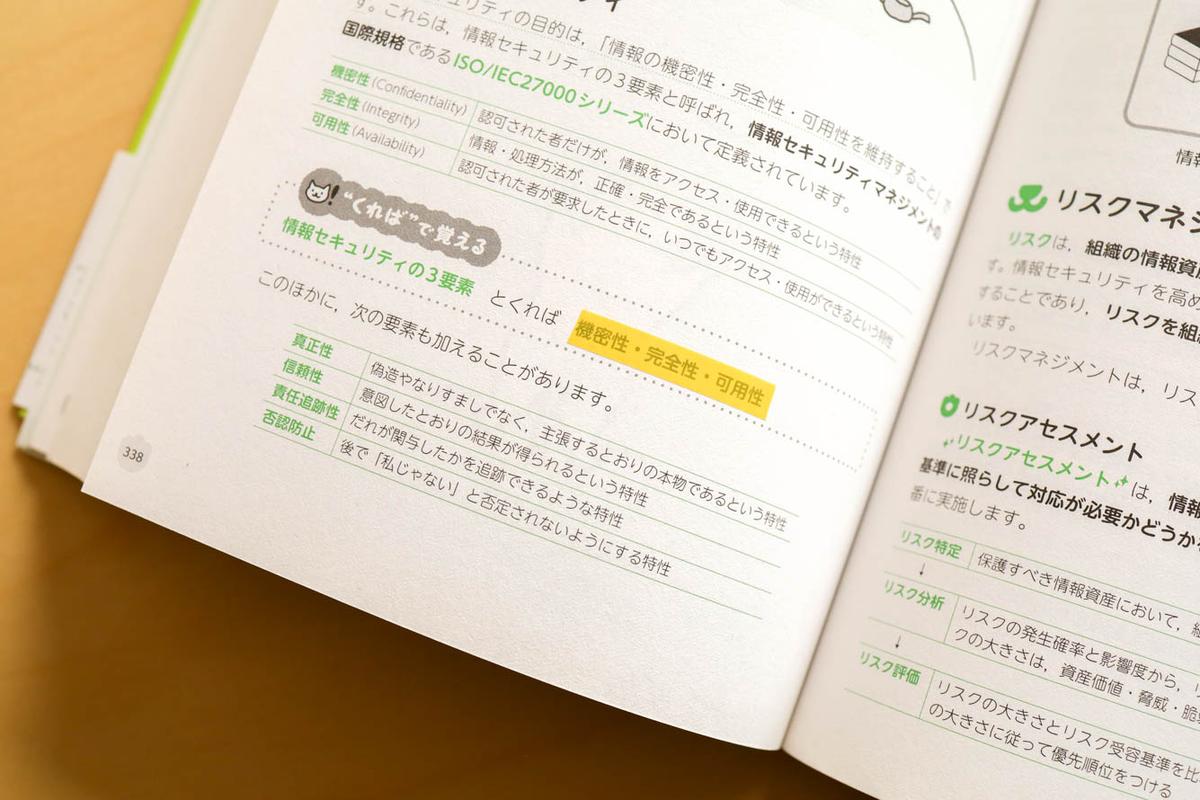 ュリティの目的は，「情報の機密性・完全性・可用性を維持すること」
す。これらは，情報セキュリティの3要素と呼ばれ，情報セキュリティマネジメントの
国際規格であるISO/IEC27000シリーズにおいて定義されています。
機密性 (Confidentiality) 認可された者だけが，情報をアクセス・使用できるという特性
完全性 (Integrity) 情報・処理方法が，正確・完全であるという特性
可用性 (Availability) 認可された者が要求したときに，いつでもアクセス・使用ができるという特性
“くれば”で覚える
情報セキュリティの3要素 とくれば 機密性・完全性・可用性
このほかに，次の要素も加えることがあります。
真正性 偽造やなりすましでなく，主張するとおりの本物であるという特性
信頼性 意図したとおりの結果が得られるという特性
責任追跡性 だれが関与したかを追跡できるような特性
否認防止 後で「私じゃない」と否定されないようにする特性
338
情報
リスクマネジ
リスクは，組織の情報資産
す。情報セキュリティを高め
することであり，リスクを組
います。
リスクマネジメントは，リス
リスクアセスメント
リスクアセスメントは，情報
基準に照らして対応が必要かどうか
番に実施します。
リスク特定 保護すべき情報資産において，
↓
リスク分析 リスクの発生確率と影響度から，
クの大きさは，資産価値・脅威・脆
↓
リスク評価 リスクの大きさとリスク受容基準を比
の大きさに従って優先順位をつける